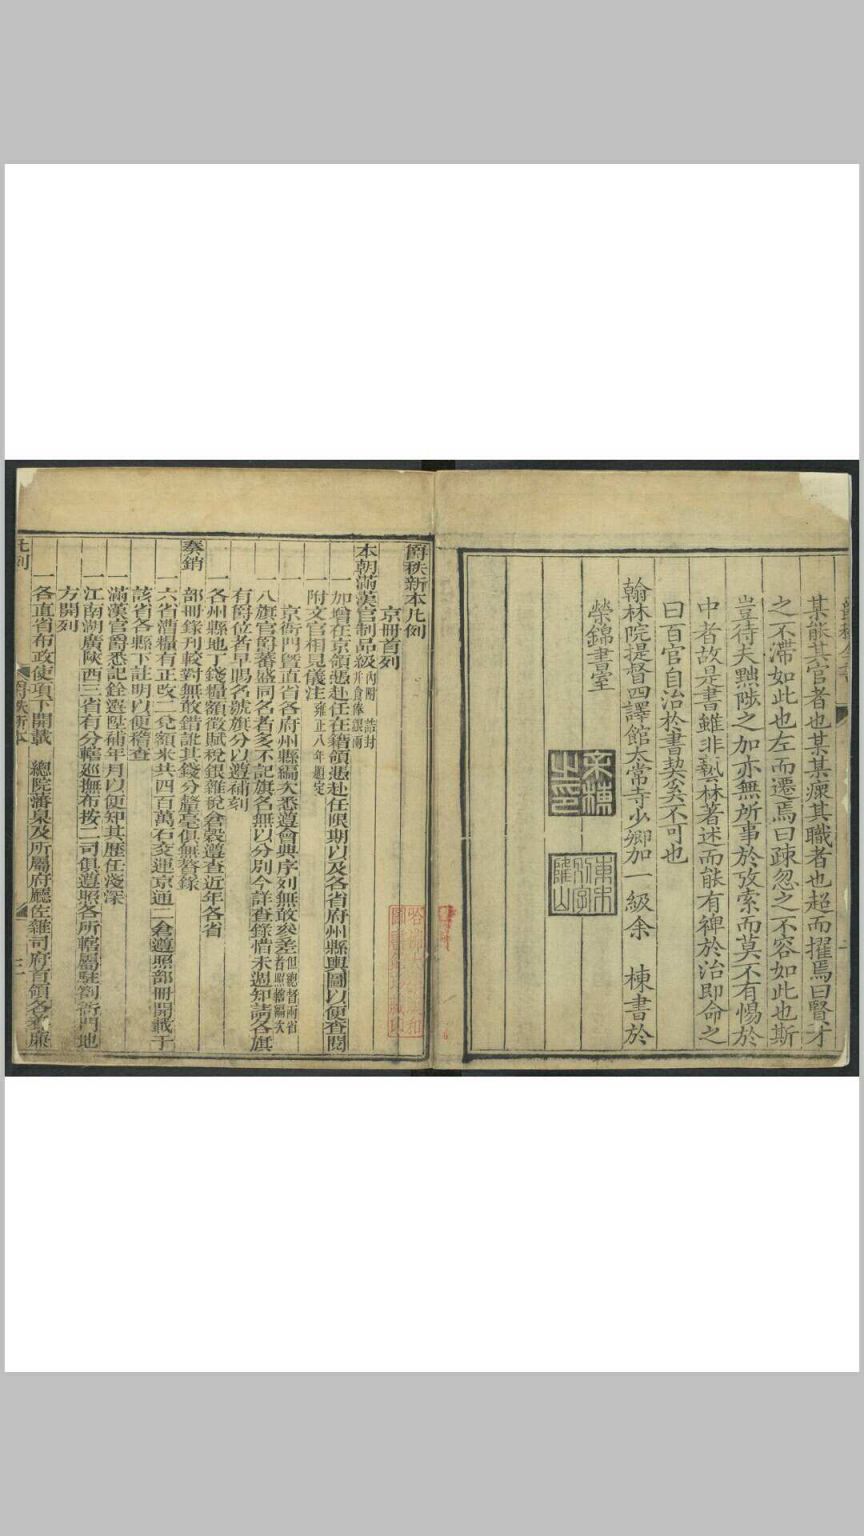 某能其官者也某某瘝其職者也超而擢焉曰賢才
之不滯如此也左而遷焉曰疎忽之不容如此也斯
豈待夫黜陟之加亦無所事於攷索而莫不有惕於
中者故是書雖非藝林著述而能有裨於治即命之
曰百官自治於書契奚不可也
翰林院提督四譯館太常寺少卿加一級余 棟書於
榮錦書室
余棟之印
東木別字隆山
爵秩新本凡例
京冊首列
本朝滿漢官制品級內附 誥封并食俸銀兩
一加增在京領憑赴任在籍領憑赴任限期以及各省府州縣輿圖以便查閱
附文官相見儀注雍正八年題定
一京衙門暨直省各府州縣編次悉遵會典序列無敢紊差但總督兩省者照轄編次
一八旗官爵蕃盛同名者多不記旗名無以分別今詳查錄惜未週知請各旗
有爵位者早賜名號旗分以遵補刻
一各州縣地丁錢糧額徵賦稅銀雜稅倉穀遵查近年各省
奏銷
部冊錄刊較對無敢錯訛其錢分釐毫俱無瞀錄
一六省漕糧有正改二兌額米共四百萬石交運京通二倉遵照部冊開載于
該省各縣下註明以便稽查
一滿漢官爵悉記銓選陞補年月以便知其歷任淺深
一江南湖廣陝西三省有分轄巡撫布按二司俱遵照各所轄屬駐劄衙門地
方開列
一各直省布政使項下開載 總院藩臬及所屬府廳佐雜司府首領各養廉
凡例
爵秩新本